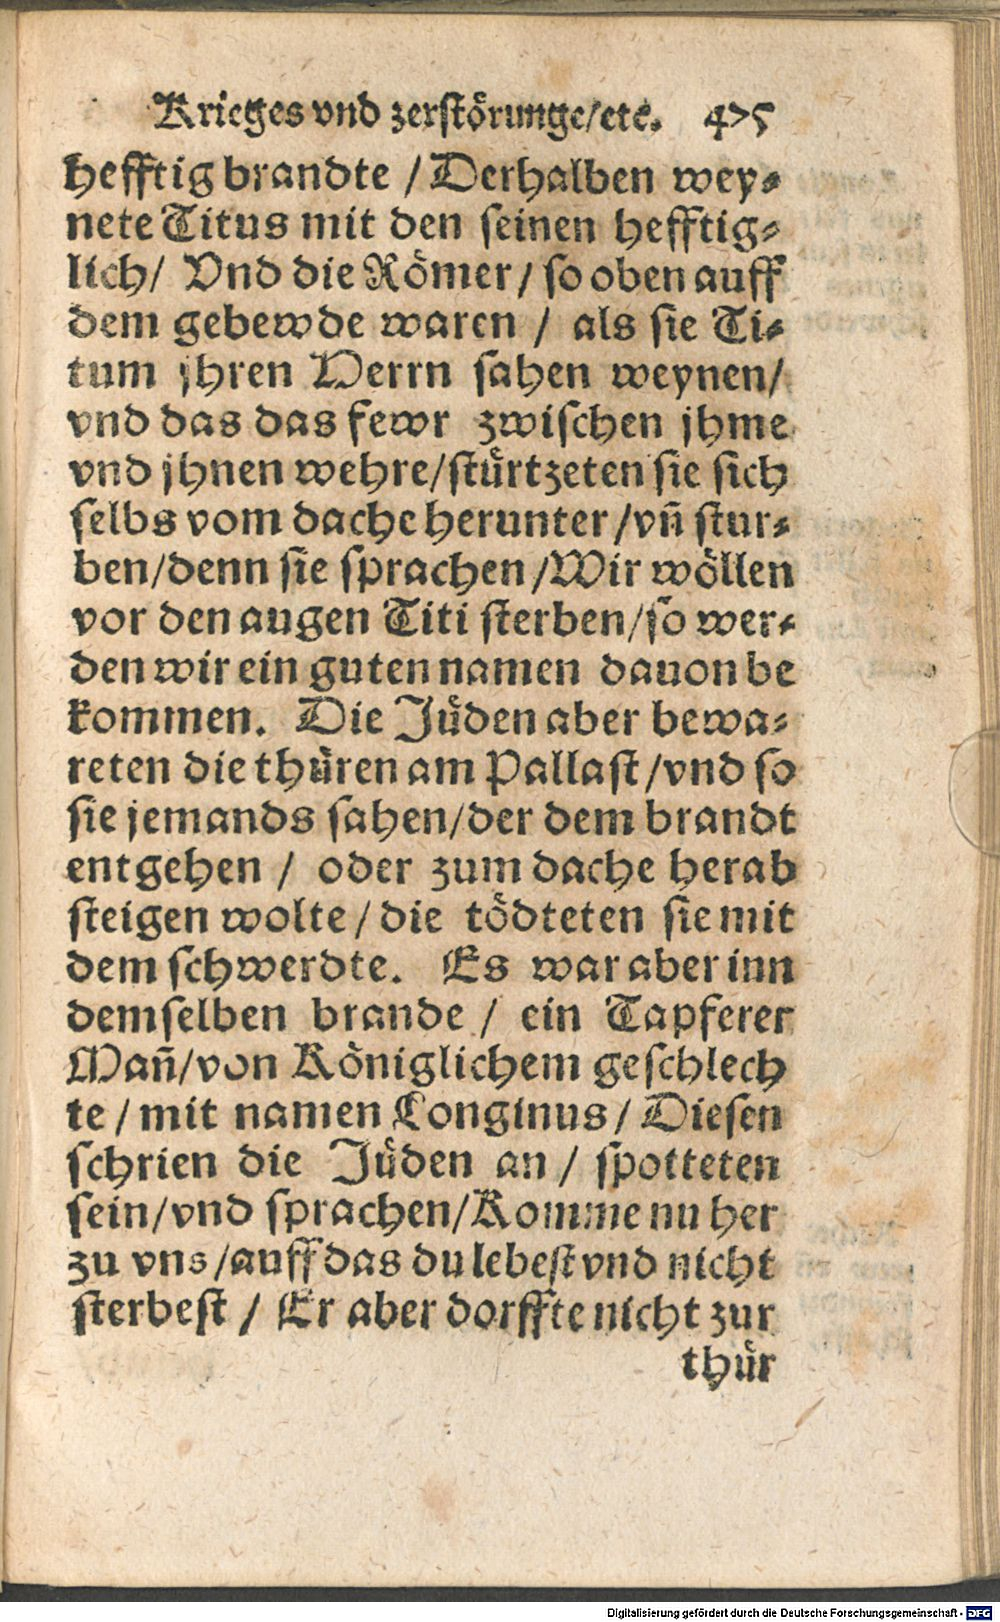 Krieges vnd zerstörunge/etc. 475
hefftig brandte / Derhalben wey⸗
nete Titus mit den seinen hefftig⸗
lich/ Vnd die Römer / so oben auff
dem gebewde waren / als sie Ti⸗
tum jhren Herrn sahen weynen/
vnd das das fewr zwischen jhme
vnd jhnen wehre/stürtzeten sie sich
selbs vom dache herunter /vñ stur⸗
ben/denn sie sprachen /Wir wöllen
vor den augen Titi sterben/so wer⸗
den wir ein guten namen dauon be
kommen. Die Jüden aber bewa⸗
reten die thüren am Pallast /vnd so
sie jemands sahen/der dem brandt
entgehen / oder zum dache herab
steigen wolte / die tödteten sie mit
dem schwerdte. Es war aber inn
demselben brande / ein Tapferer
Mañ/von Königlichem geschlech
te / mit namen Longinus / Diesen
schrien die Jüden an / spotteten
sein/vnd sprachen/Komme nu her
zu vns /auff das du lebest vnd nicht
sterbest / Er aber dorffte nicht zur
thür
Digitalisierung gefördert durch die Deutsche Forschungsgemeinschaft - DFG